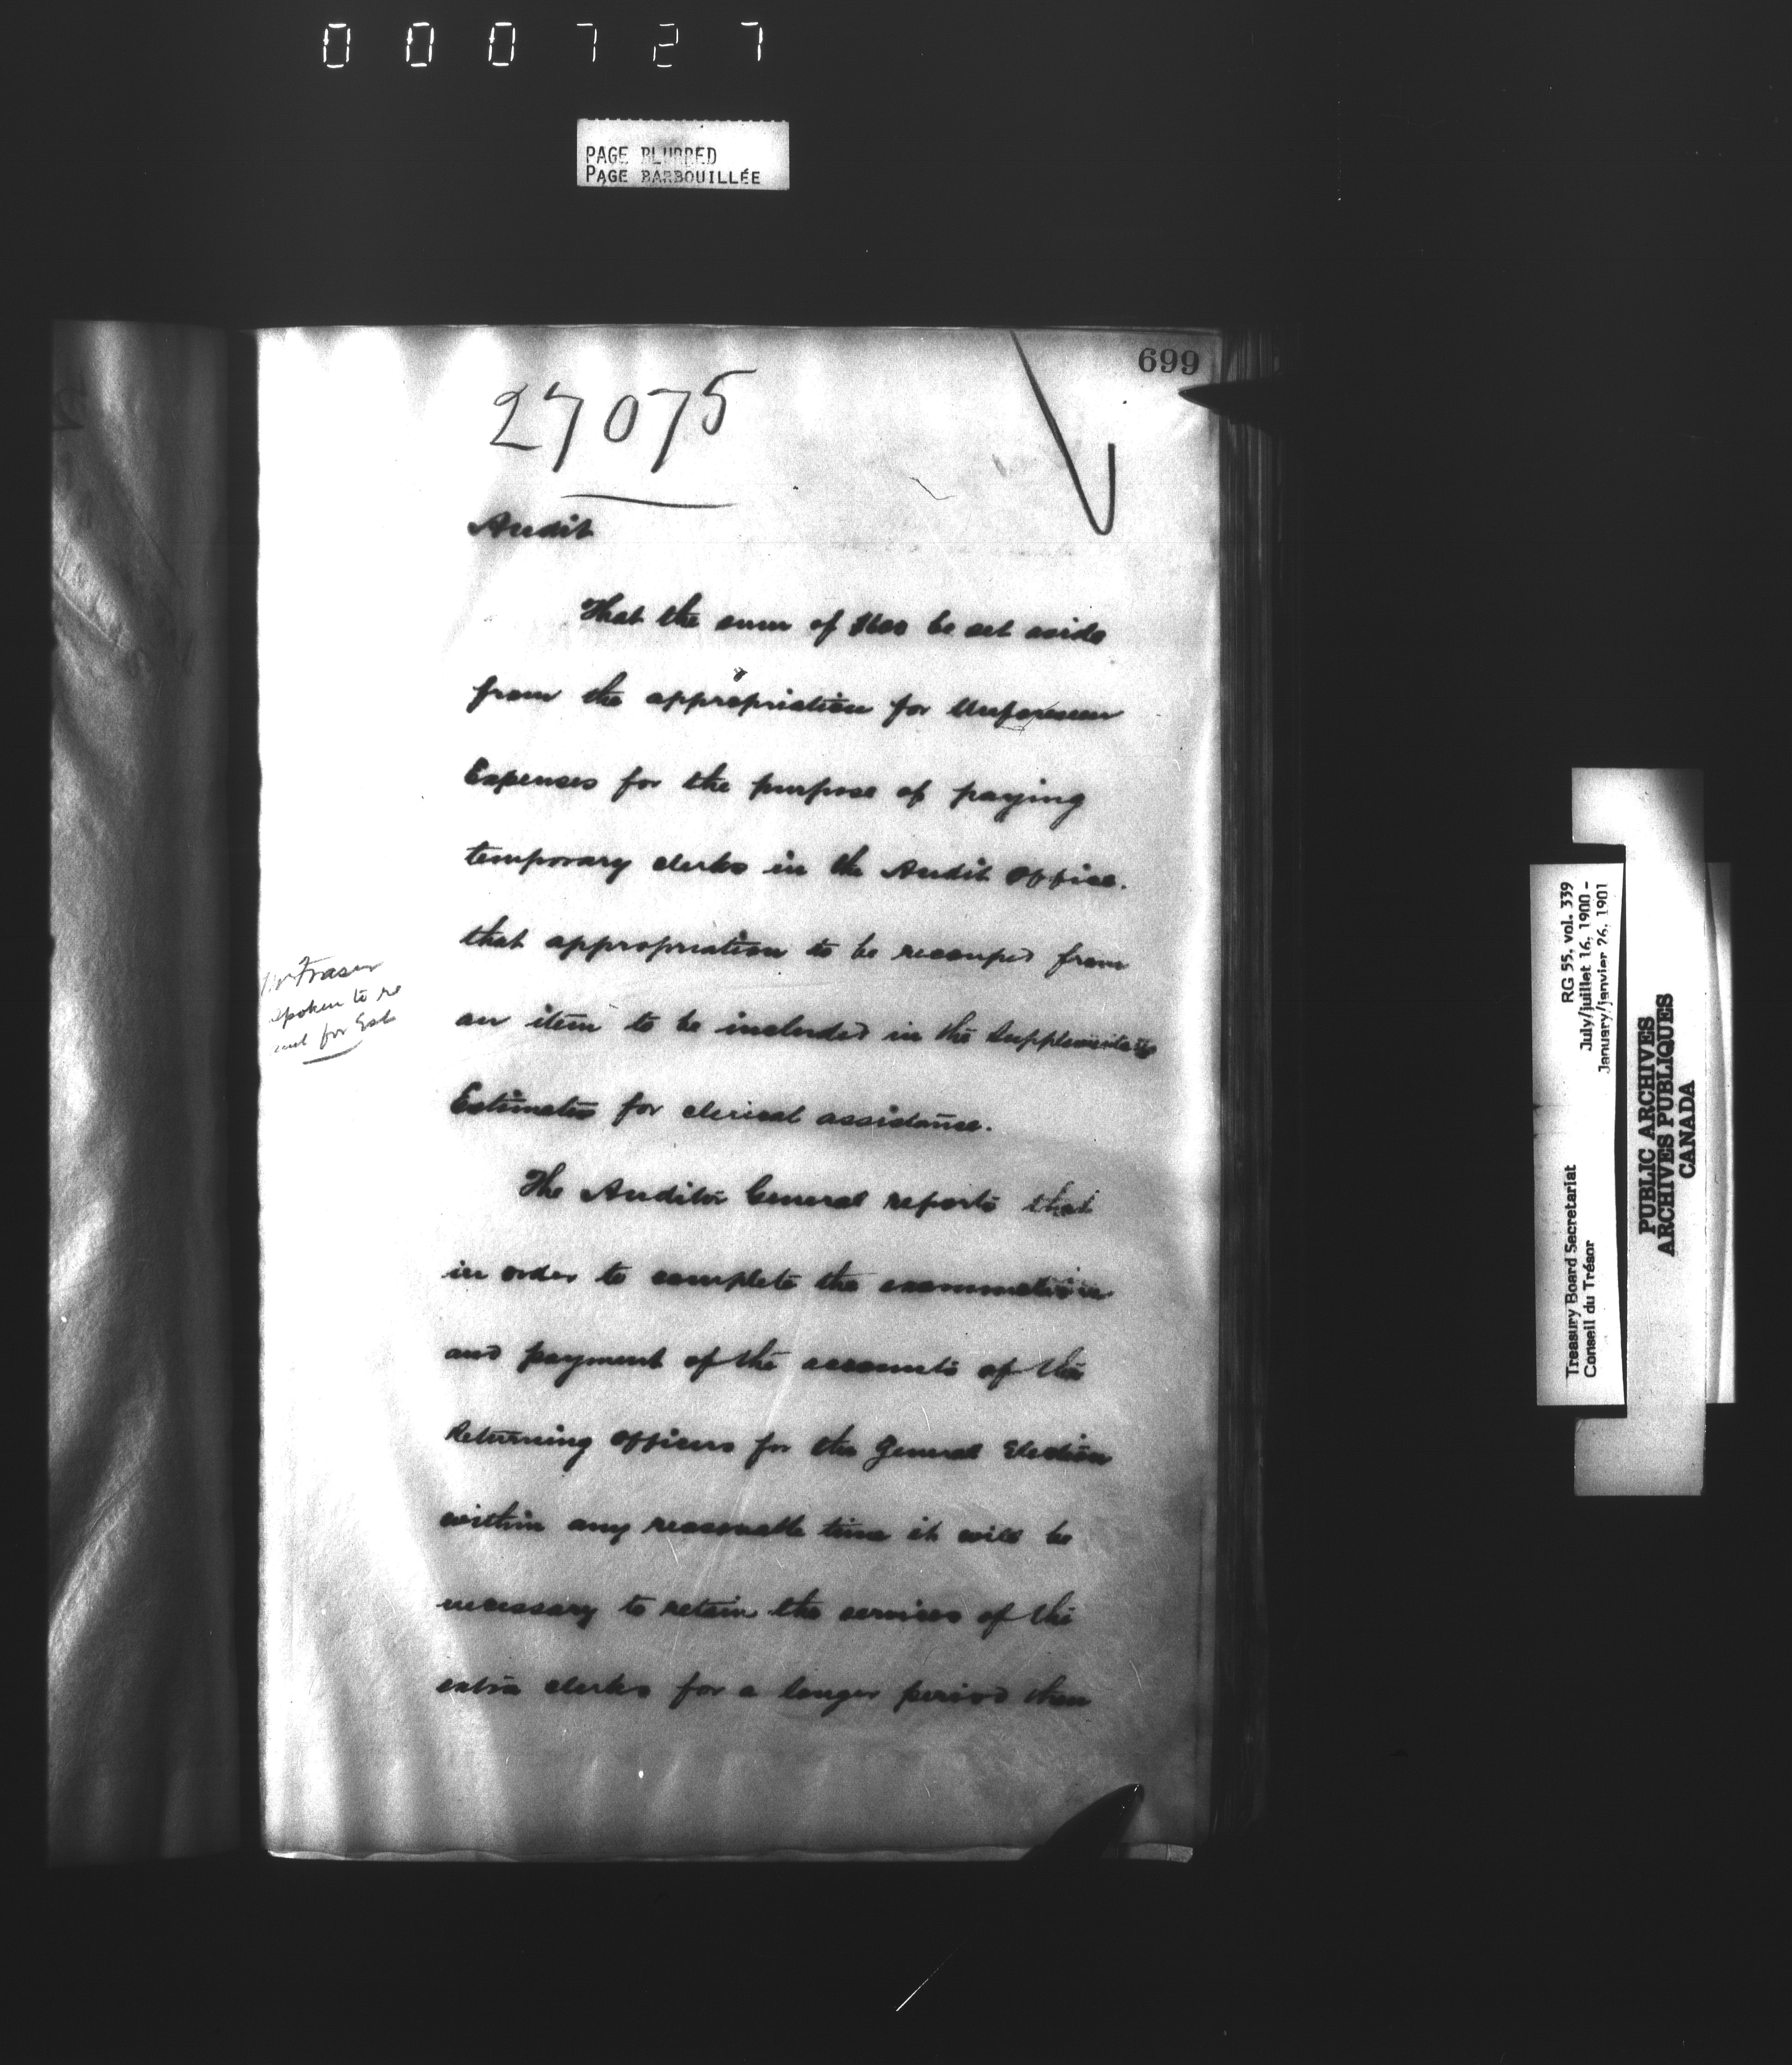 000727
PAGE BLURRED
PAGE BARBOUILLÉE
699
27075
Audit
That the sum of be set aside
from the appropriation for Unforeseen
Expenses for the purpose of paying
temporary clerks in the Audit Office.
that appropriation to be recouped from
an item to be included in the Supplementary
Estimates for clerical assistance.
The Auditor General reports that
in order to complete the examination
and payment of the accounts of the
Returning Officers for the General Election
within any reasonable time it will be
necessary to retain the services of the
extra clerks for a longer period than
Mr Fraser
spoken to re
for Est
Treasury Board Secretariat
Conseil du Trésor
RG 55, vol. 339
July/juillet 16, 1900 -
January/janvier 26, 1901
PUBLIC ARCHIVES
ARCHIVES PUBLIQUES
CANADA